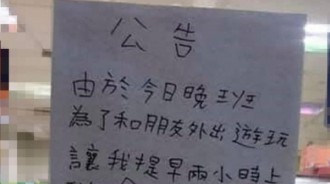 公告
由於今日晚班
為了和朋友外出遊玩
讓我提早兩小時上